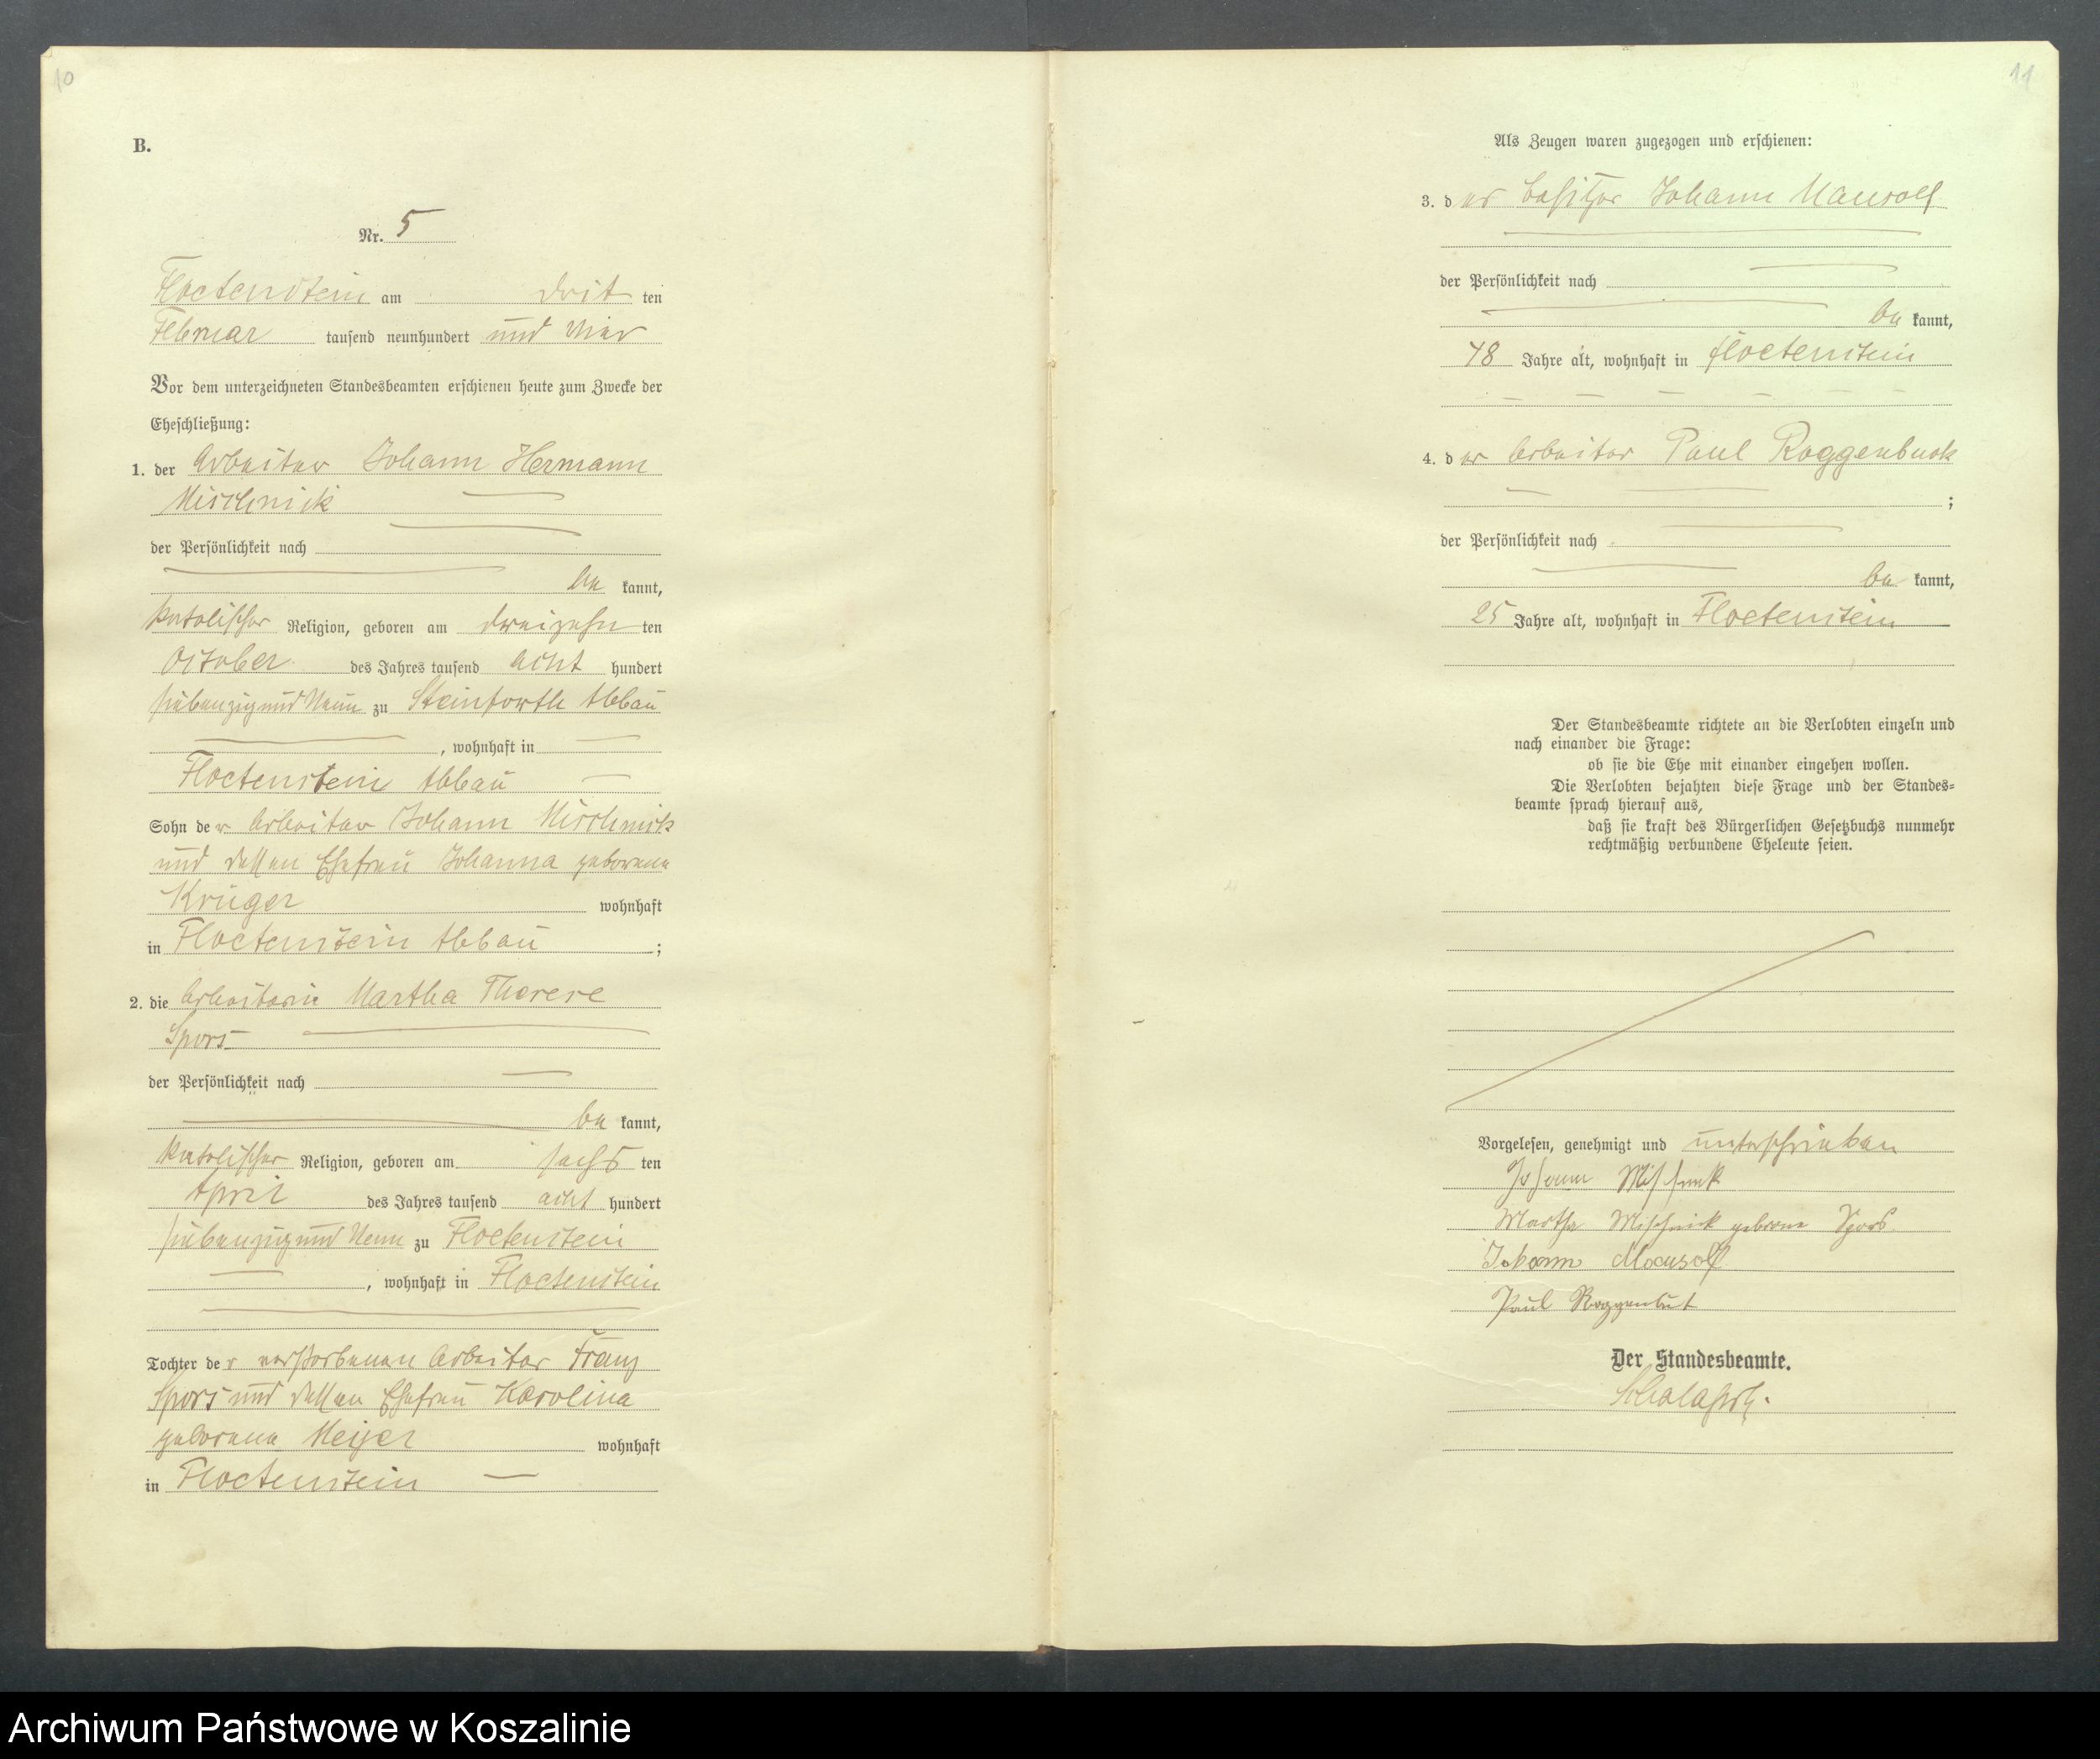 10
B.
Nr. 5
Floetenstein am drit ten
Februar tausend neunhundert und vier
Vor dem unterzeichneten Standesbeamten erschienen heute zum Zwecke der
Eheschließung:
1. der Arbeiter Johann Hermann
Mischnick
der Persönlichkeit nach
be kannt,
katolischer Religion, geboren am dreizehn ten
October des Jahres tausend acht hundert
siebenzig und Neun zu Steinforth Abbau
, wohnhaft in
Floetenstein Abbau
Sohn der Arbeiter Johann Mischnick
und dessen Ehefrau Johanna geborene
Krüger wohnhaft
in Floetenstein Abbau ;
2. die Arbeiterin Martha Therese
Spors
der Persönlichkeit nach
be kannt,
katolischer Religion, geboren am sechs ten
April des Jahres tausend acht hundert
siebenzig und Neun zu Floetenstein
, wohnhaft in Floetenstein
Tochter der verstorbenen Arbeiter Franz
Spors und dessen Ehefrau Karolina
geborene Meyer wohnhaft
in Floetenstein
11
Als Zeugen waren zugezogen und erschienen:
3. der Besitzer Johann Mausolf
der Persönlichkeit nach
be kannt,
48 Jahre alt, wohnhaft in Floetenstein
4. der Arbeiter Paul Roggenbuck
;
der Persönlichkeit nach
be kannt,
25 Jahre alt, wohnhaft in Floetenstein
Der Standesbeamte richtete an die Verlobten einzeln und
nach einander die Frage:
ob sie die Ehe mit einander eingehen wollen.
Die Verlobten bejahten diese Frage und der Standes-
beamte sprach hierauf aus,
daß sie kraft des Bürgerlichen Gesetzbuchs nunmehr
rechtmäßig verbundene Eheleute seien.
Vorgelesen, genehmigt und unterschrieben
Johann Mischnik
Martha Mischnick geborene Spors
Johann Mausolf
Paul Roggenbuk
Der Standesbeamte.
Archiwum Państwowe w Koszalinie